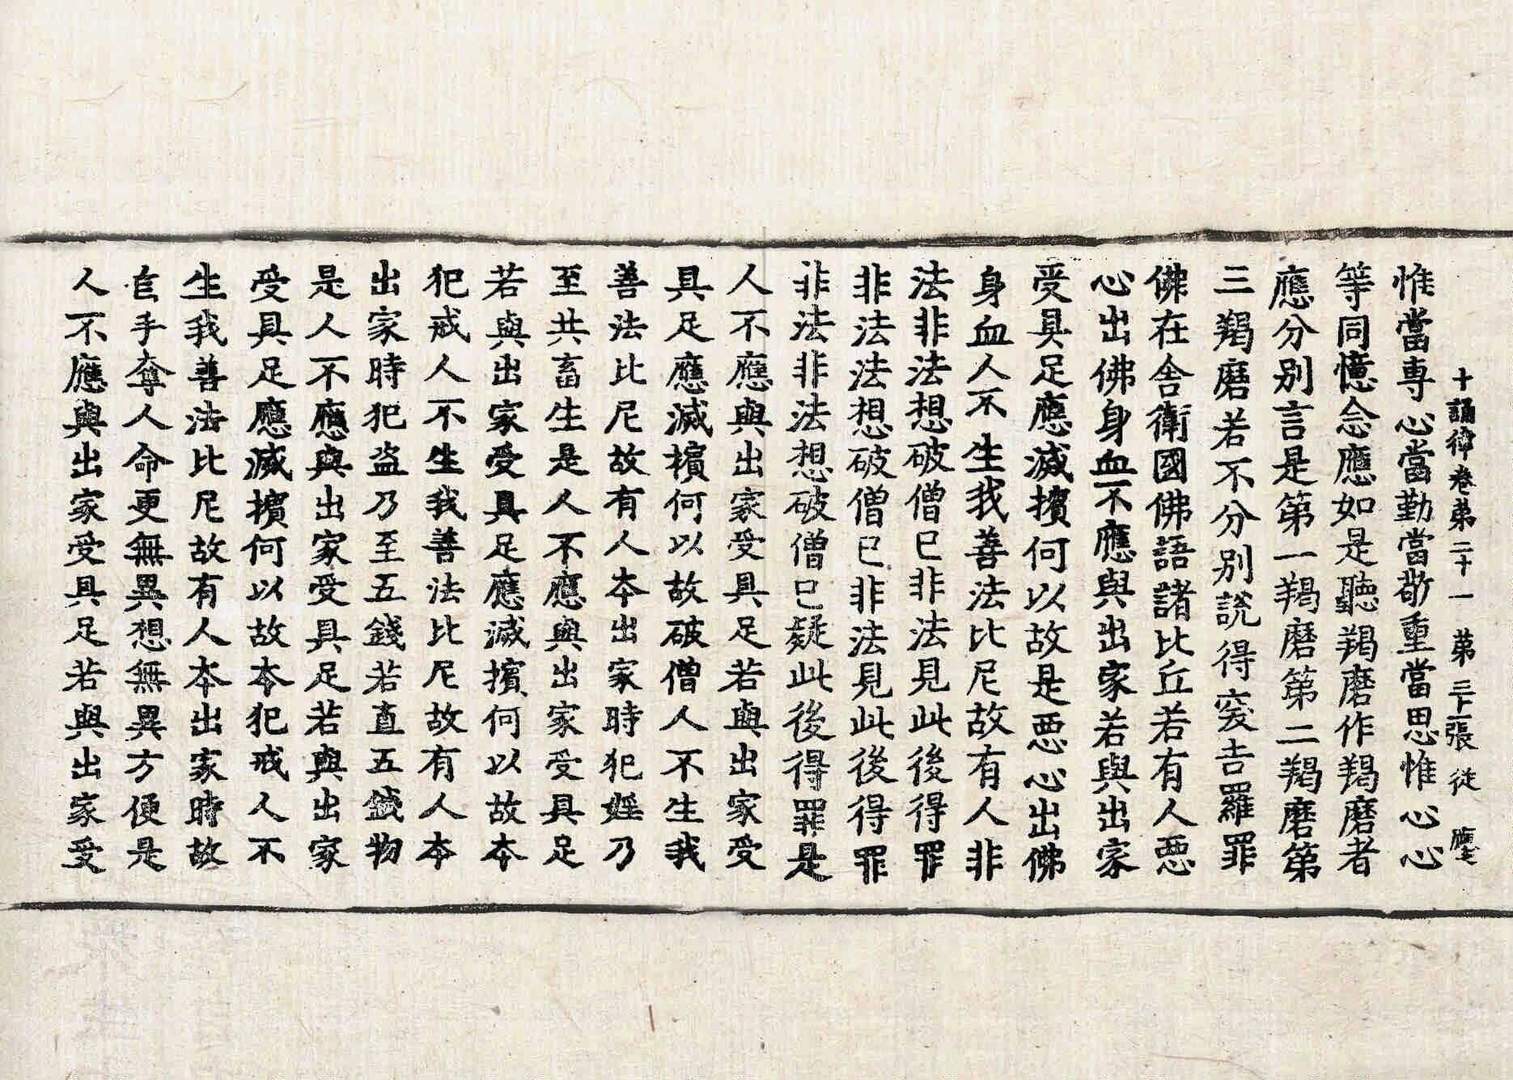 十誦律卷第二十一 第三十二張 従 應七
惟當専心當勤當敬重當思惟心心
等同憶念應如是聽羯磨作羯磨者
應分別言是第一羯磨第二羯磨第
三羯磨若不分別說得突吉羅罪
佛在舍衛國佛語諸比丘若有人惡
心出佛身血不應與出家若與出家
受具足應滅擯何以故是惡心出佛
身血人不生我善法比尼故有人非
法非法想破僧已非法見此後得罪
非法法想破僧已非法見此後得罪
非法非法想破僧已疑此後得罪是
人不應與出家受具足若與出家受
具足應滅擯何以故破僧人不生我
善法比尼故有人本出家時犯婬乃
至共畜生是人不應與出家受具足
若與出家受具足應滅擯何以故本
犯戒人不生我善法比尼故有人本
出家時犯盜乃至五錢若直五錢物
是人不應與出家受具足若與出家
受具足應滅擯何以故本犯戒人不
生我善法比尼故有人本出家時故
自手奪人命更無異想無異方便是
人不應與出家受具足若與出家受